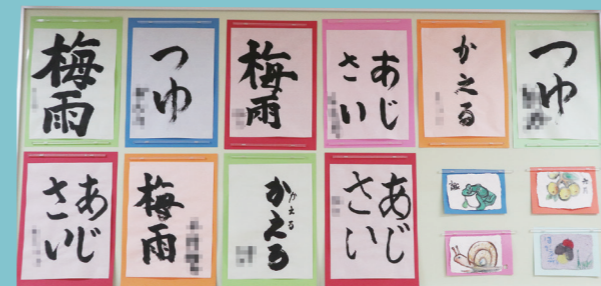 梅雨
つゆ
梅雨
あじ
さい
かえる
つゆ
あじ
さい
梅雨
かえる
かえる
あじ
さい